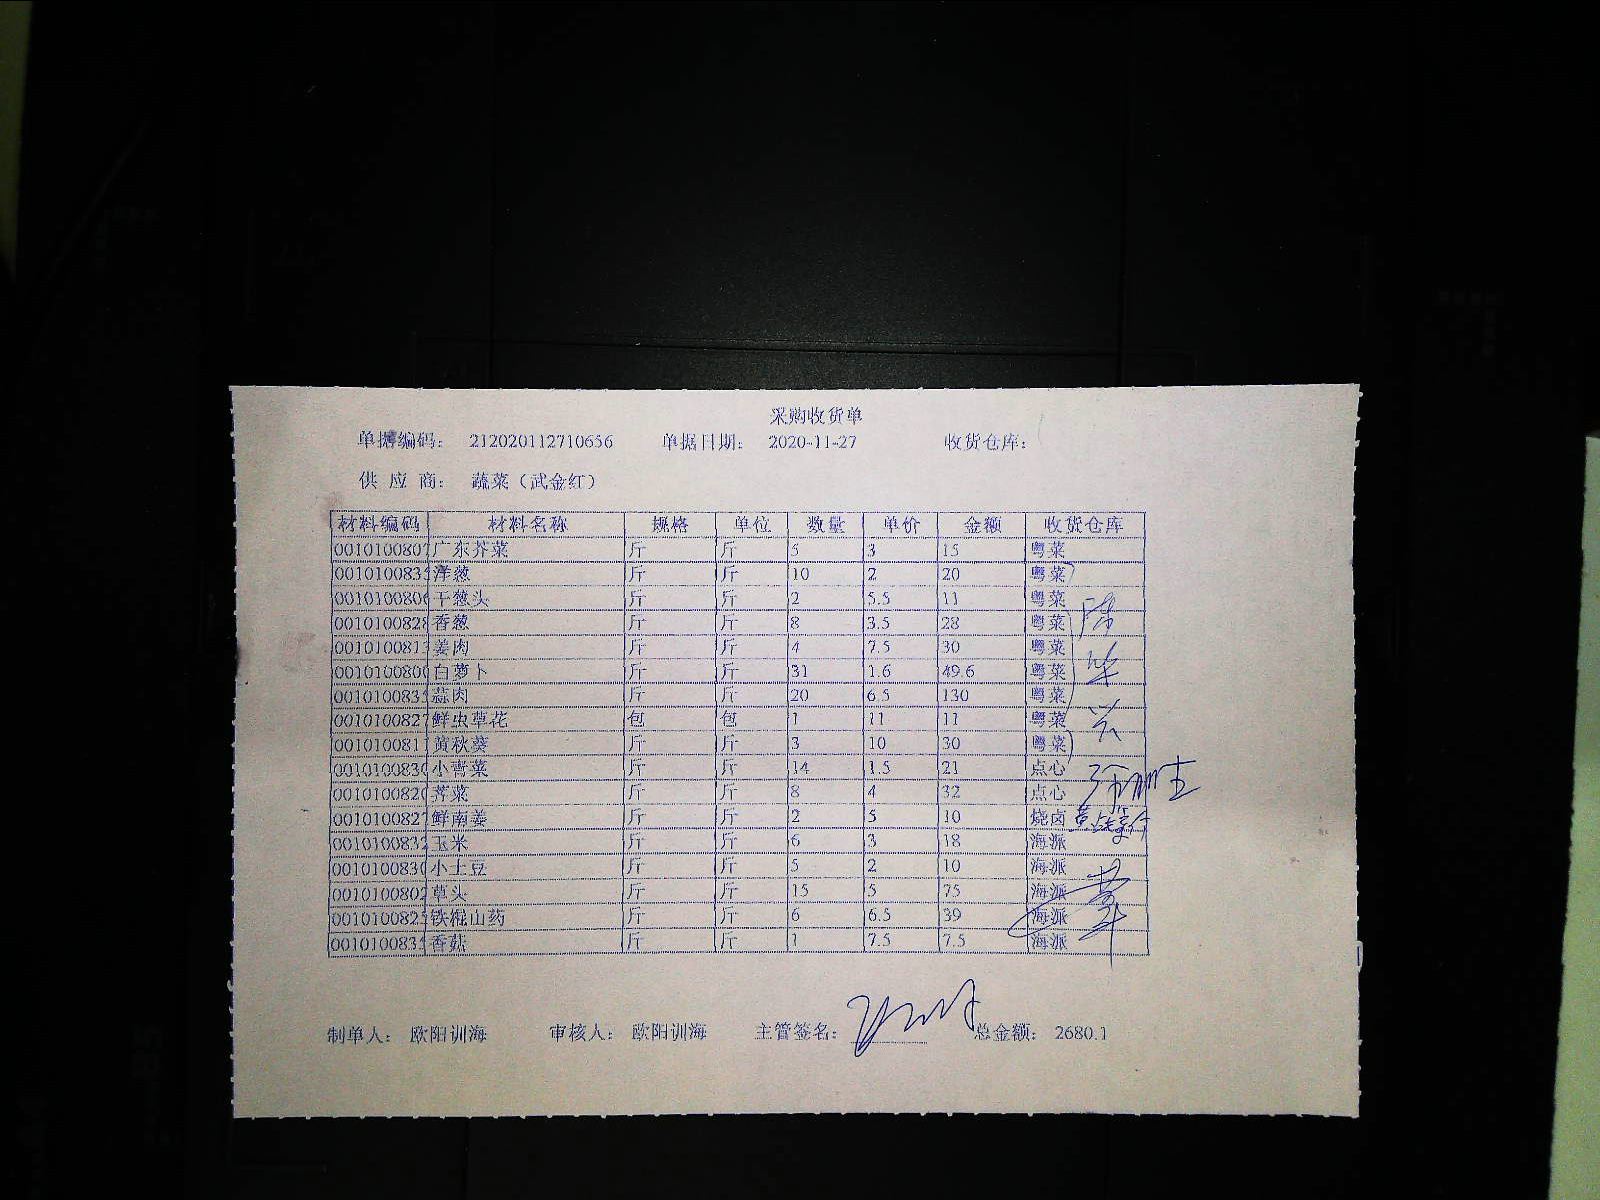 采购收货单
单据编码： 212020112710656 单据日期： 2020-11-27 收货仓库：
供 应 商： 蔬菜（武金红）
材料编码 材料名称 规格 单位 数量 单价 金额 收货仓库
0010100807 广东芥菜 斤 斤 5 3 15 粤菜
001010083 洋葱 斤 斤 10 2 20 粤菜
001010080 干葱头 斤 斤 2 5.5 11 粤菜
0010100828 香葱 斤 斤 8 3.5 28 粤菜
001010081 姜肉 斤 斤 4 7.5 30 粤菜
001010080 白萝卜 斤 斤 31 1.6 49.6 粤菜
001010083 蒜肉 斤 斤 20 6.5 130 粤菜
0010100827 鲜虫草花 包 包 1 11 11 粤菜
0010100811 黄秋葵 斤 斤 3 10 30 粤菜
001010083 小青菜 斤 斤 14 1.5 21 点心
001010082 荠菜 斤 斤 8 4 32 点心
0010100827 鲜南姜 斤 斤 2 5 10 烧卤
001010083 玉米 斤 斤 6 3 18 海派
001010083 小土豆 斤 斤 5 2 10 海派
0010100802 草头 斤 斤 15 5 75 海派
001010082 铁棍山药 斤 斤 6 6.5 39 海派
001010083 香菇 斤 斤 1 7.5 7.5 海派
制单人： 欧阳训海 审核人： 欧阳训海 主管签名： 总金额： 2680.1